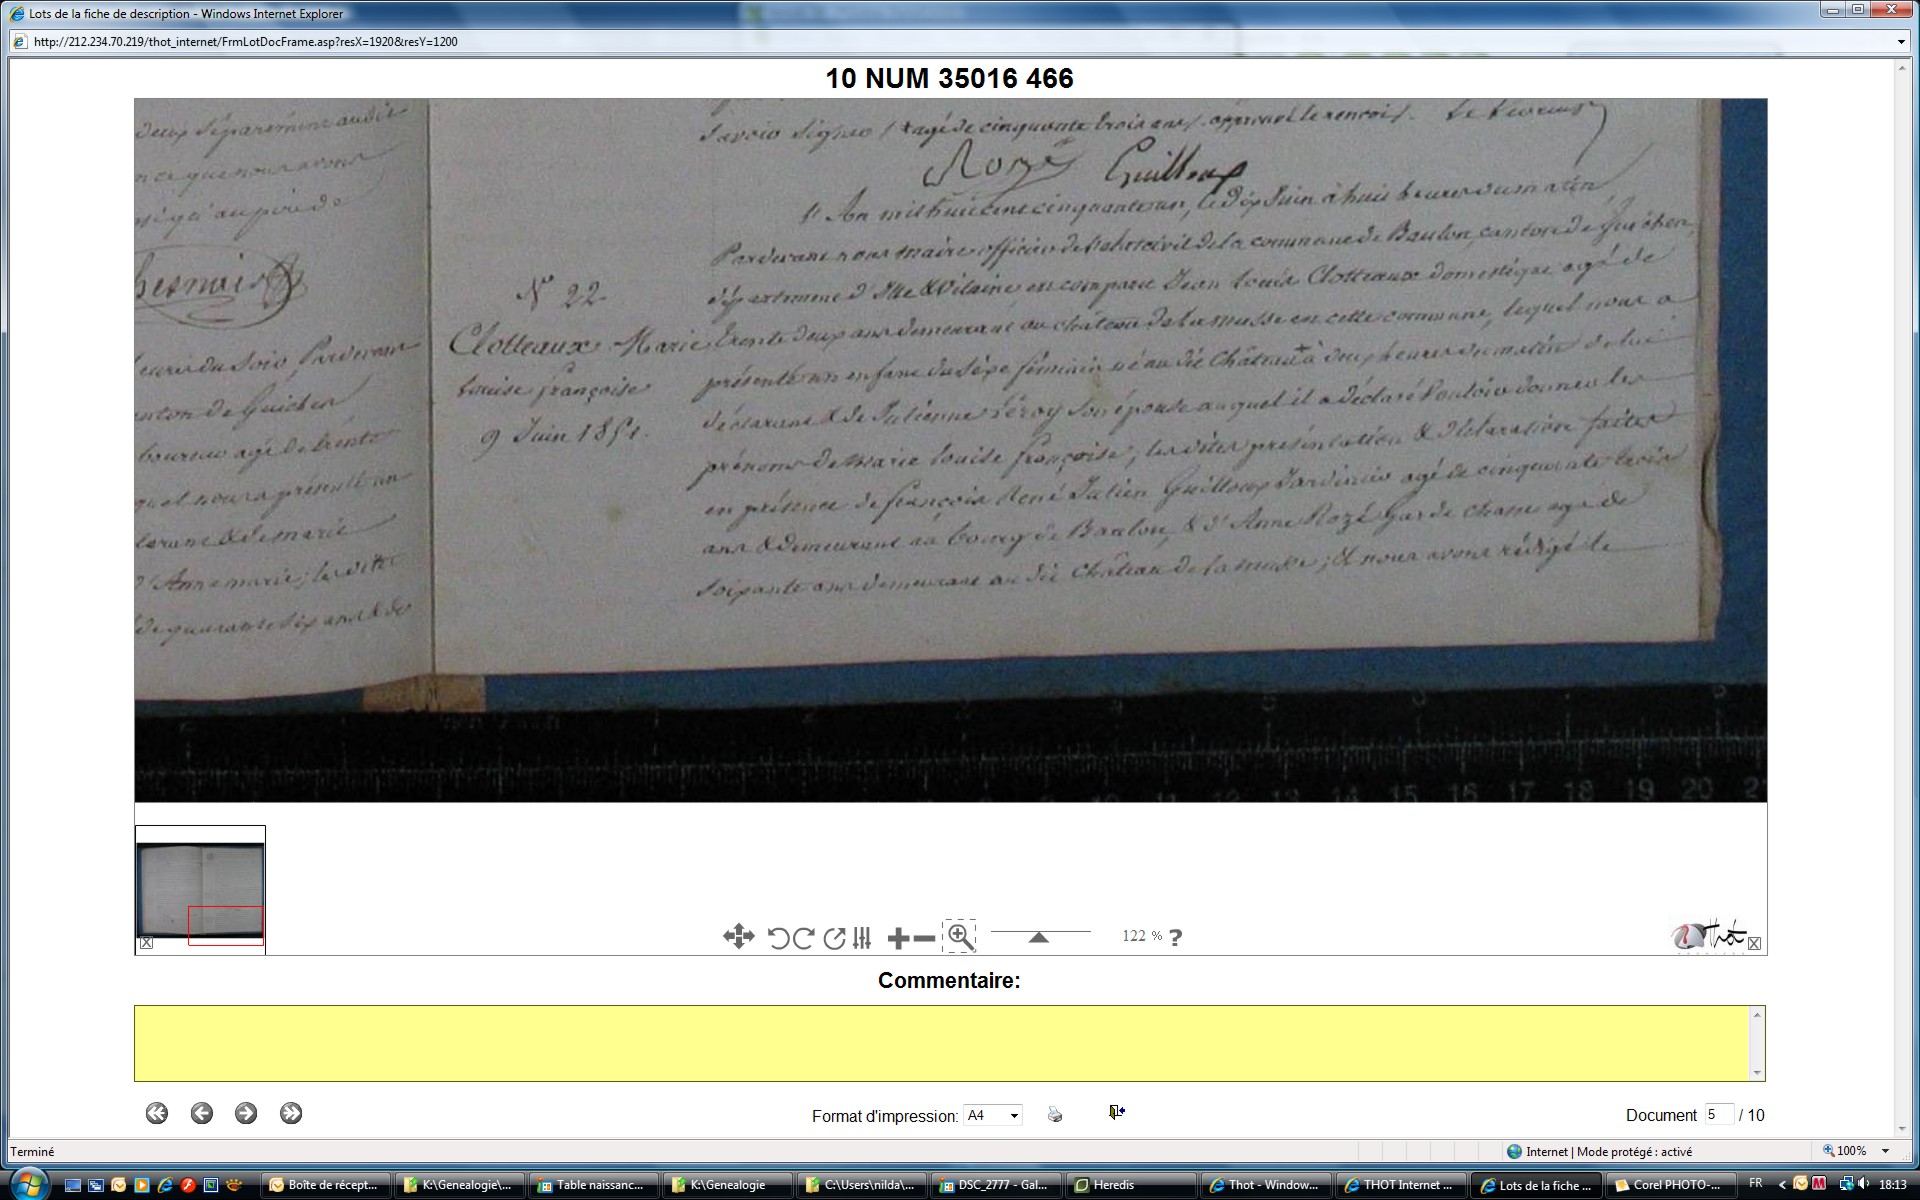 Lots de la fiche de description - Windows Internet Explorer
http://212.234.70.219/thot_internet/FrmLotDocFrame.asp?resX=1920&resY=1200
10 NUM 35016 466
deux séparément audit
n ce que nous avons
hesnais
heures du soir Pardevant
anton de Guichen
boureur agé de trente
quel nous a présenté un
larant & de marie
d'Anne marie; les dites
de quarante six ans & de
savoir signer / + agé de cinquante trois ans / approuvé le renvoi /.
Rozé Guilloux
L'An mil huit cent cinquante un, le dix Juin à huit heures du matin
Pardevant nous maire officier de l'état civil de la commune de Baulon, canton de Guichen,
département d'Ille & Vilaine est comparu Jean Louis Clotteaux domestique agé de
trente deux ans demeurant au château de la musse en cette commune, lequel nous a
présenté un enfant du sexe féminin né au dit Château + à deux heures du matin de lui
déclarant & de Julienne Leroy son épouse auquel il a déclaré vouloir donner les
prénoms de marie louise françoise; les dites présentation & déclaration faites
en présence de françois René Julien Guilloux Jardinier agé de cinquante trois
ans & demeurant au bourg de Baulon, & d'Anne Rozé Garde chasse agé de
soixante ans demeurant au dit Château de la musse; & nous avons rédigé le
N° 22
Clotteaux Marie
louise françoise
9 Juin 1851.
10 11 12 13 14 15 16 17 18 19 20 2
122 % ?
Thot
Commentaire:
Format d'impression: A4
Document 5 / 10
Terminé
Internet | Mode protégé : activé
100%
Boîte de récept...
K:\Genealogie\...
Table naissanc...
K:\Genealogie
C:\Users\nilda\...
DSC_2777 - Gal...
Heredis
Thot - Window...
THOT Internet ...
Lots de la fiche ...
Corel PHOTO-...
FR
18:13